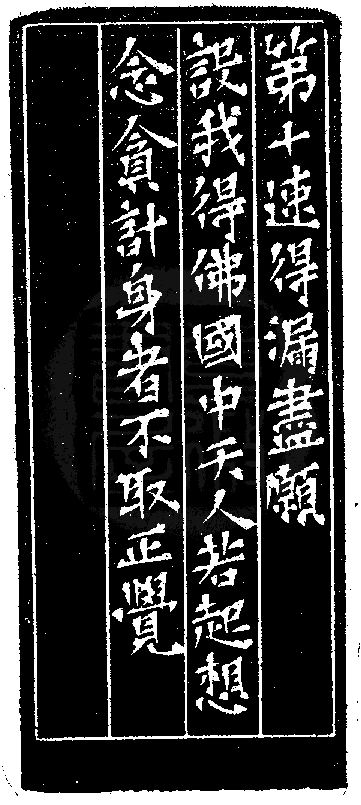 第十速得漏盡願
設我得佛國中天人若起想
念貪計身者不取正覺